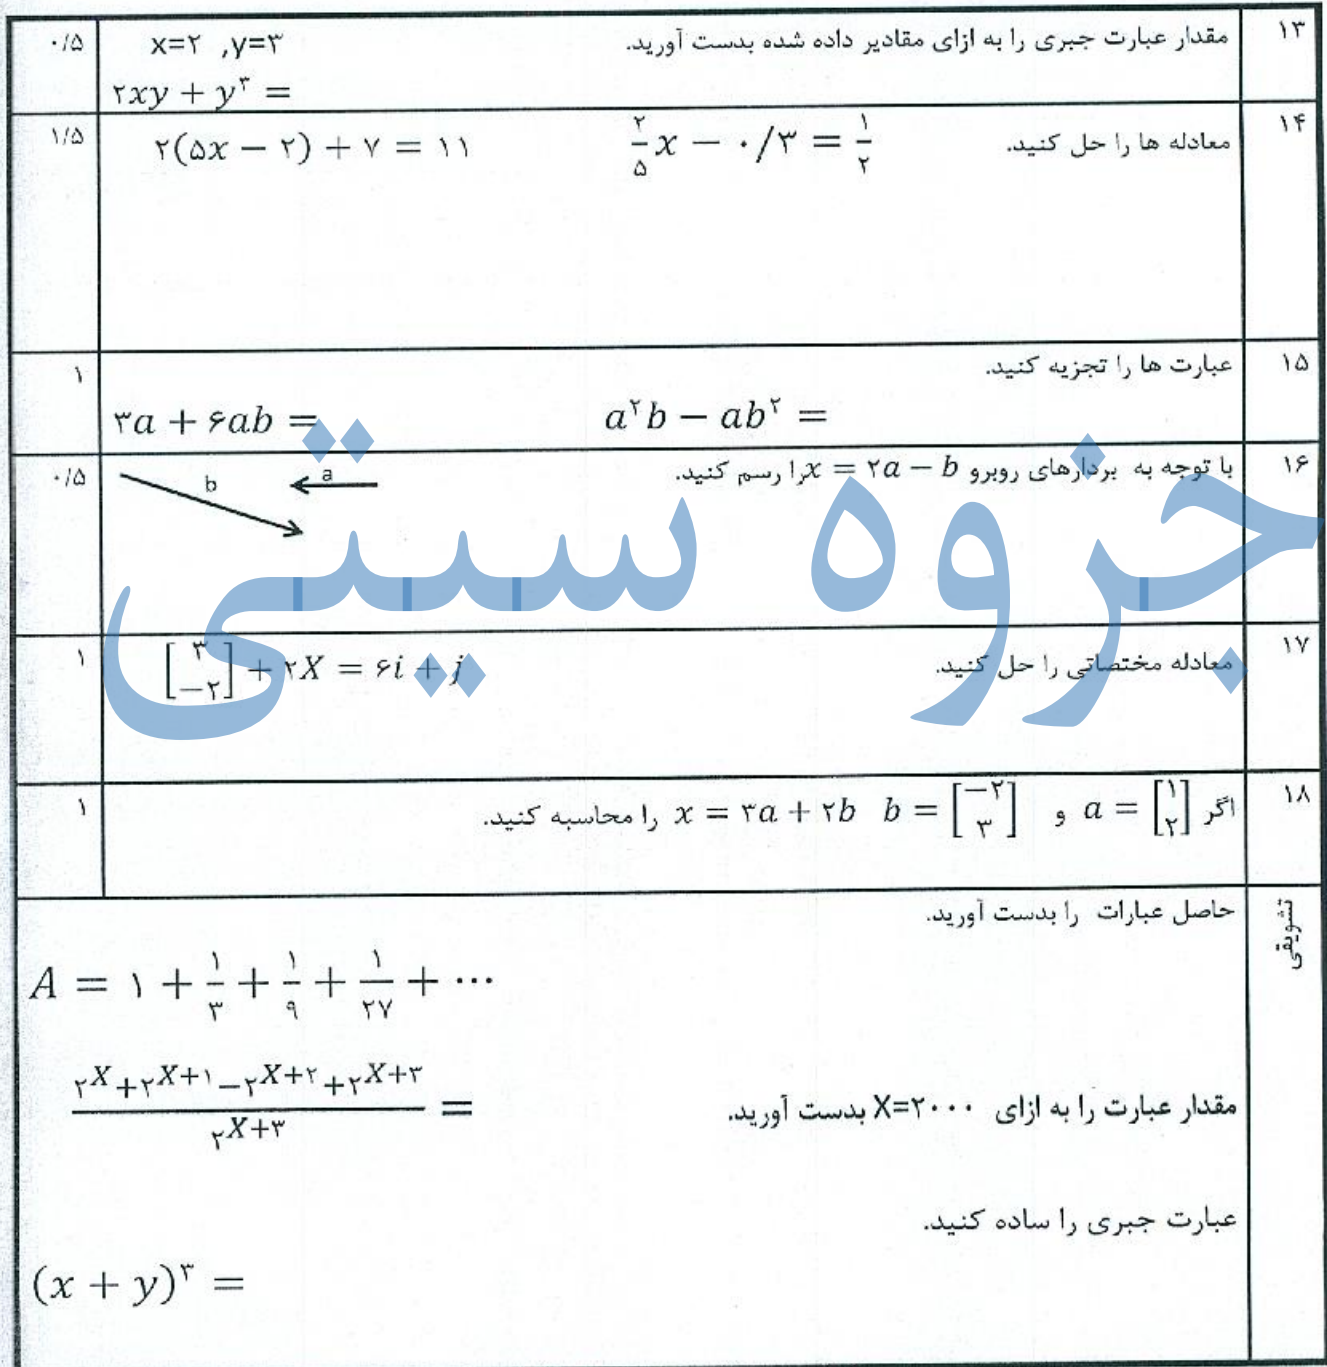 ۱۳ مقدار عبارت جبری را به ازای مقادیر داده شده بدست آورید. x=۲ ,y=۳ ۰/۵
۲xy + y^۳ =
۱۴ معادله ها را حل کنید. ۲/۵ x − ۰/۳ = ۱/۲ ۲(۵x − ۲) + ۷ = ۱۱ ۱/۵
۱۵ عبارت ها را تجزیه کنید. ۱
a^۲b − ab^۲ = ۳a + ۶ab =
۱۶ با توجه به بردارهای روبرو x = ۲a − b را رسم کنید. a b ۰/۵
۱۷ معادله مختصاتی را حل کنید. [۳ −۲] + ۲X = ۶i + j ۱
۱۸ اگر a = [۱ ۲] و b = [−۲ ۳] x = ۳a + ۲b را محاسبه کنید. ۱
تشویقی حاصل عبارات را بدست آورید.
A = ۱ + ۱/۳ + ۱/۹ + ۱/۲۷ + ⋯
مقدار عبارت را به ازای X=۲۰۰۰ بدست آورید. (۲^X+۲^X+۱−۲^X+۲+۲^X+۳)/(۲^X+۳) =
عبارت جبری را ساده کنید.
(x + y)^۳ =
جزوه سیتی